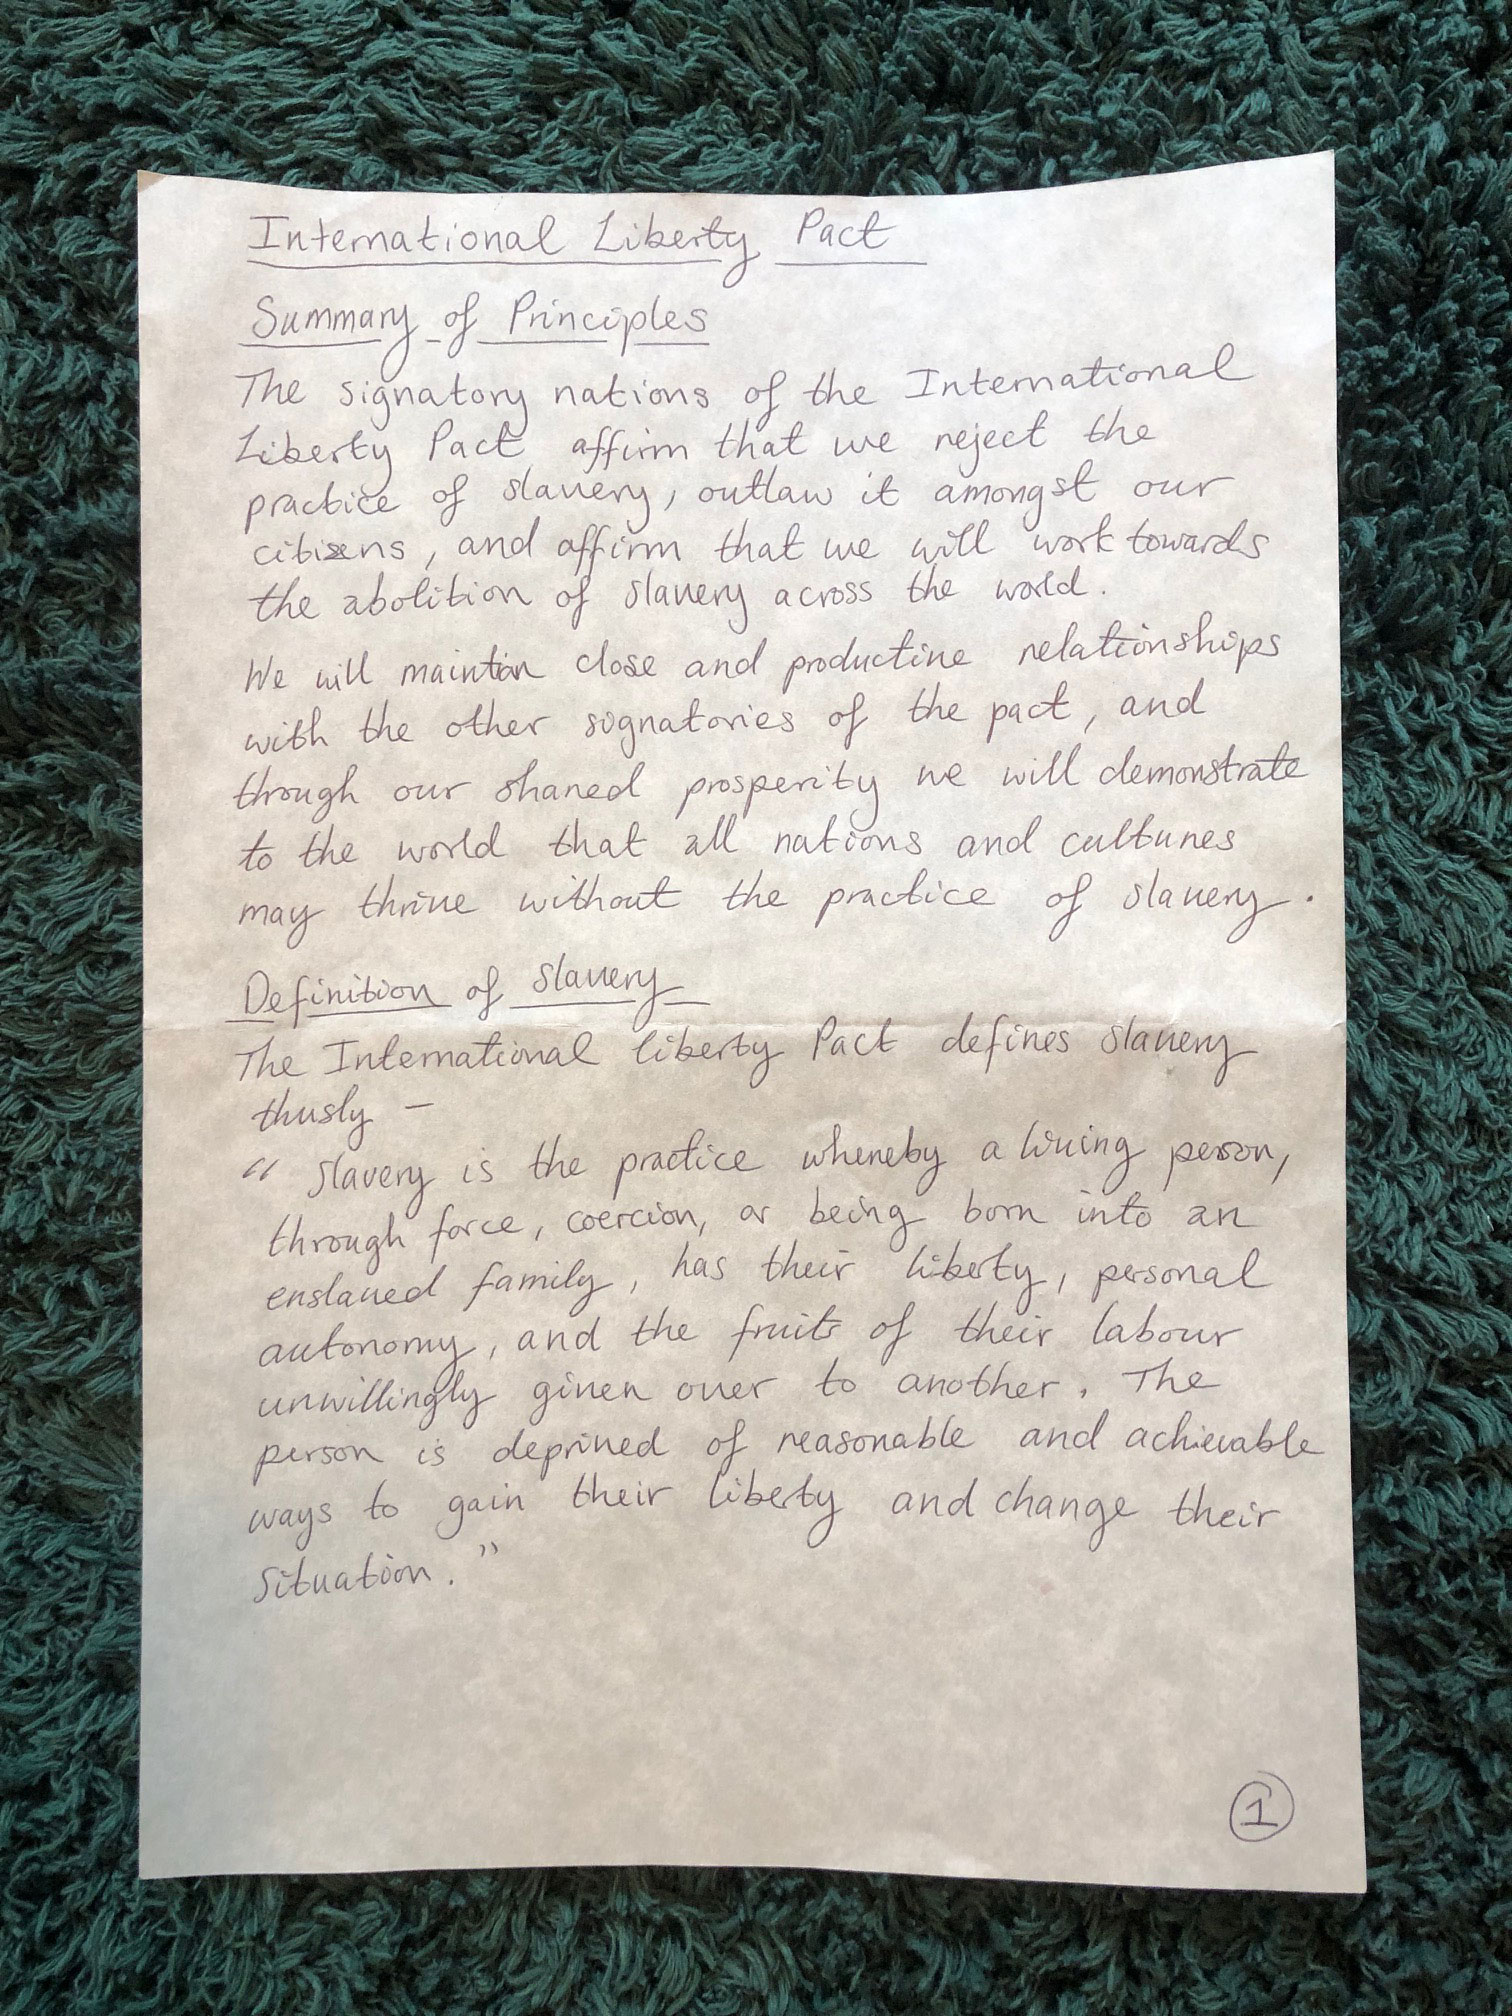 International Liberty Pact
Summary of Principles
The signatory nations of the International
Liberty Pact affirm that we reject the
practice of slavery, outlaw it amongst our
citizens, and affirm that we will work towards
the abolition of slavery across the world.
We will maintain close and productive relationships
with the other signatories of the pact, and
through our shared prosperity we will demonstrate
to the world that all nations and cultures
may thrive without the practice of slavery.
Definition of Slavery
The International Liberty Pact defines slavery
thusly –
" Slavery is the practice whereby a living person,
through force, coercion, or being born into an
enslaved family, has their liberty, personal
autonomy, and the fruits of their labour
unwillingly given over to another. The
person is deprived of reasonable and achievable
ways to gain their liberty and change their
situation."
1